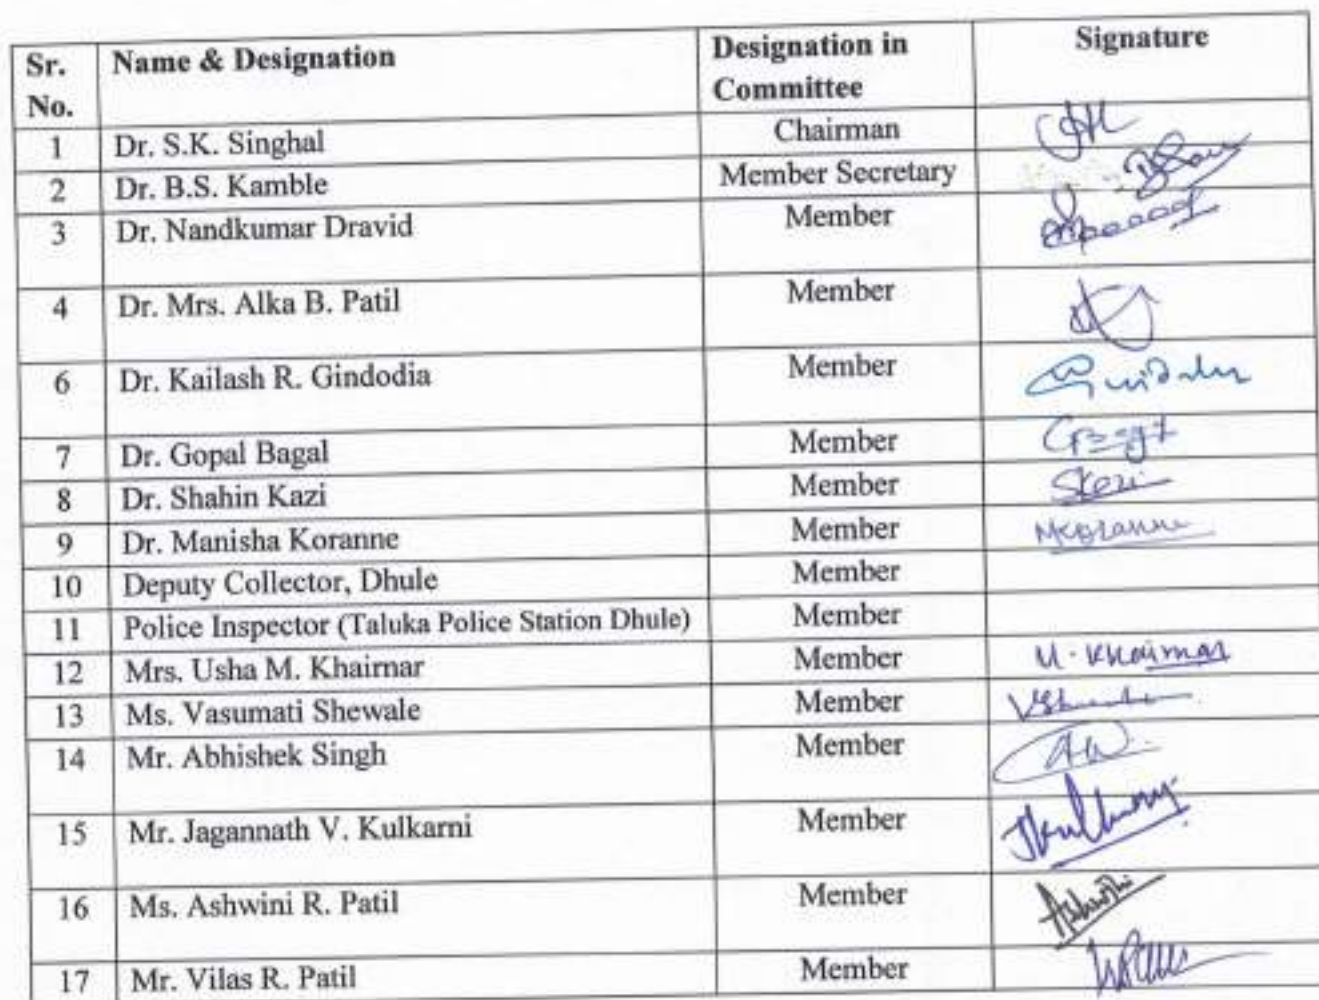 Sr. No. Name & Designation Designation in Committee Signature
1 Dr. S.K. Singhal Chairman
2 Dr. B.S. Kamble Member Secretary
3 Dr. Nandkumar Dravid Member
4 Dr. Mrs. Alka B. Patil Member
6 Dr. Kailash R. Gindodia Member
7 Dr. Gopal Bagal Member
8 Dr. Shahin Kazi Member Skazi
9 Dr. Manisha Koranne Member MKoranne
10 Deputy Collector, Dhule Member
11 Police Inspector (Taluka Police Station Dhule) Member
12 Mrs. Usha M. Khairnar Member U. Khairnar
13 Ms. Vasumati Shewale Member
14 Mr. Abhishek Singh Member
15 Mr. Jagannath V. Kulkarni Member
16 Ms. Ashwini R. Patil Member Ashwini
17 Mr. Vilas R. Patil Member